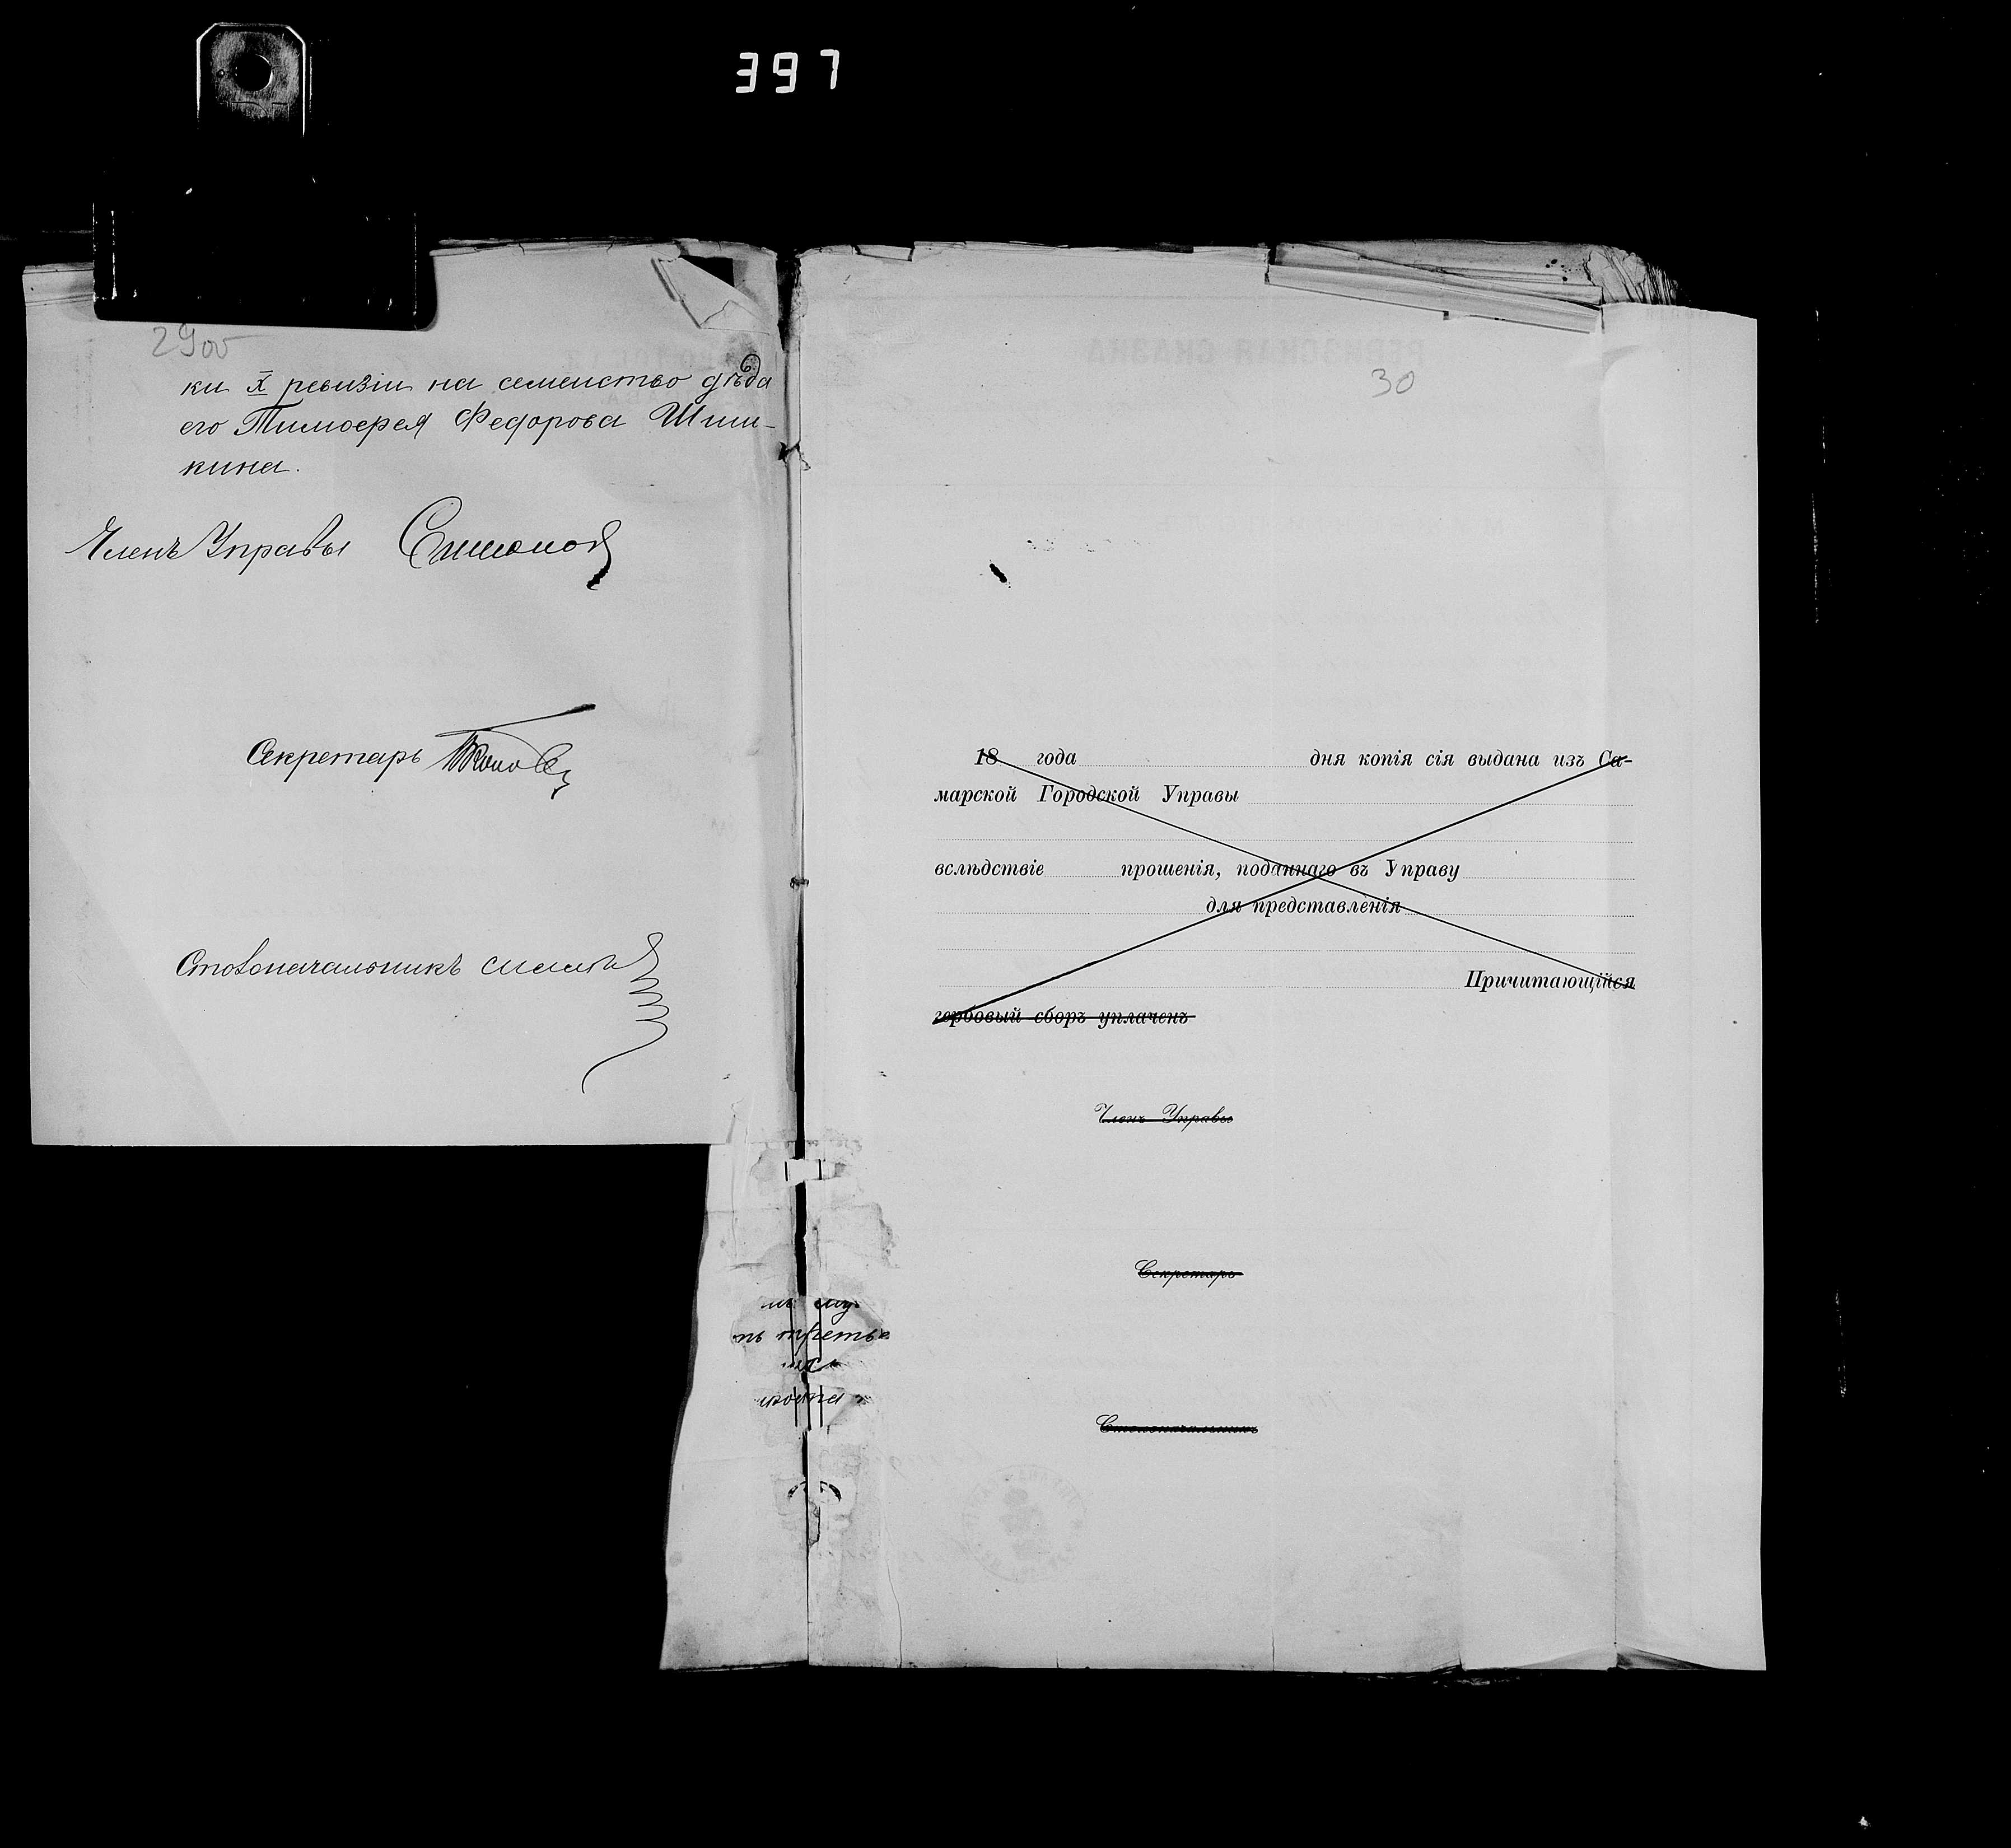 397
29об
6
ки X ревизіи на семейство дѣда
его Тимоѳея Федорова Шиш-
кина.
Членъ Управы
Секретарь
Столоначальникъ
30
18 года дня копія сія выдана изъ Са-
марской Городской Управы
вслѣдствіе прошенія, поданнаго въ Управу
для представленія
Причитающійся
гербовый сборъ уплаченъ
Членъ Управы
Секретарь
Столоначальникъ